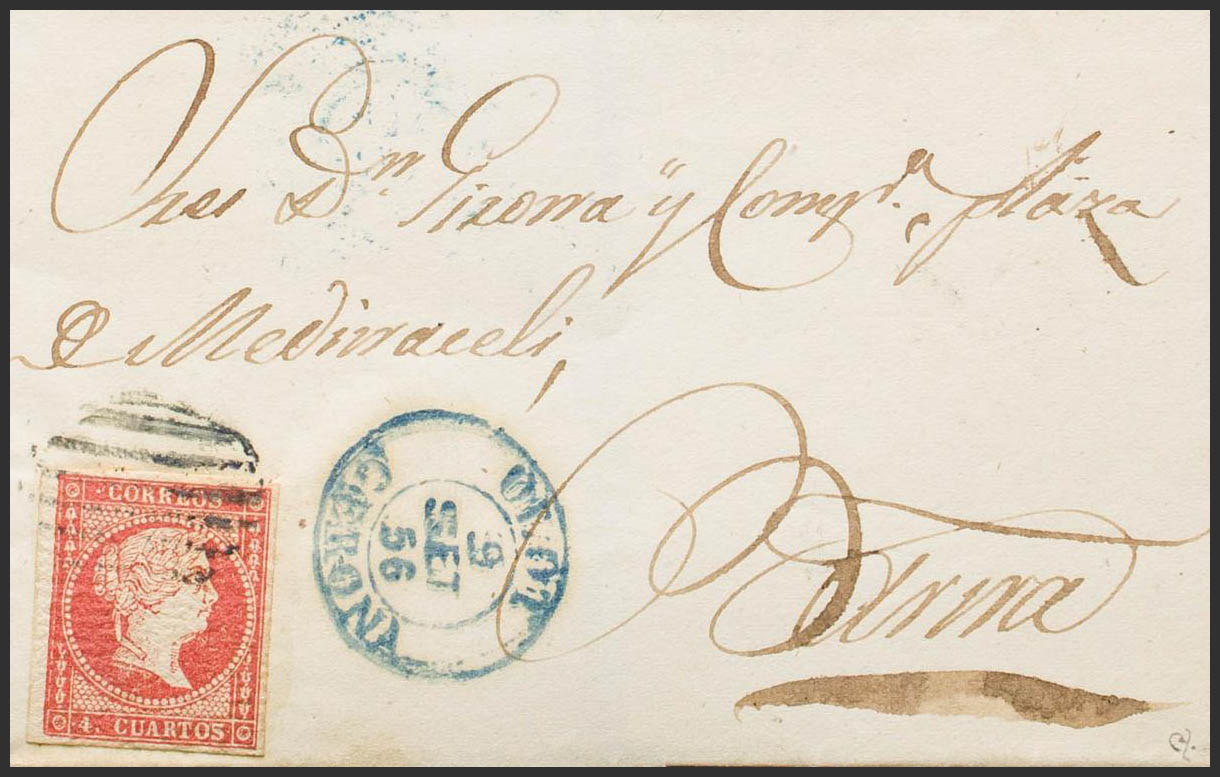 Sres Dn. Tizorra y Compa. Plaza
de Medinaceli,
OLOT
9
SET
56
GERONA
CORREOS
4. CUARTOS